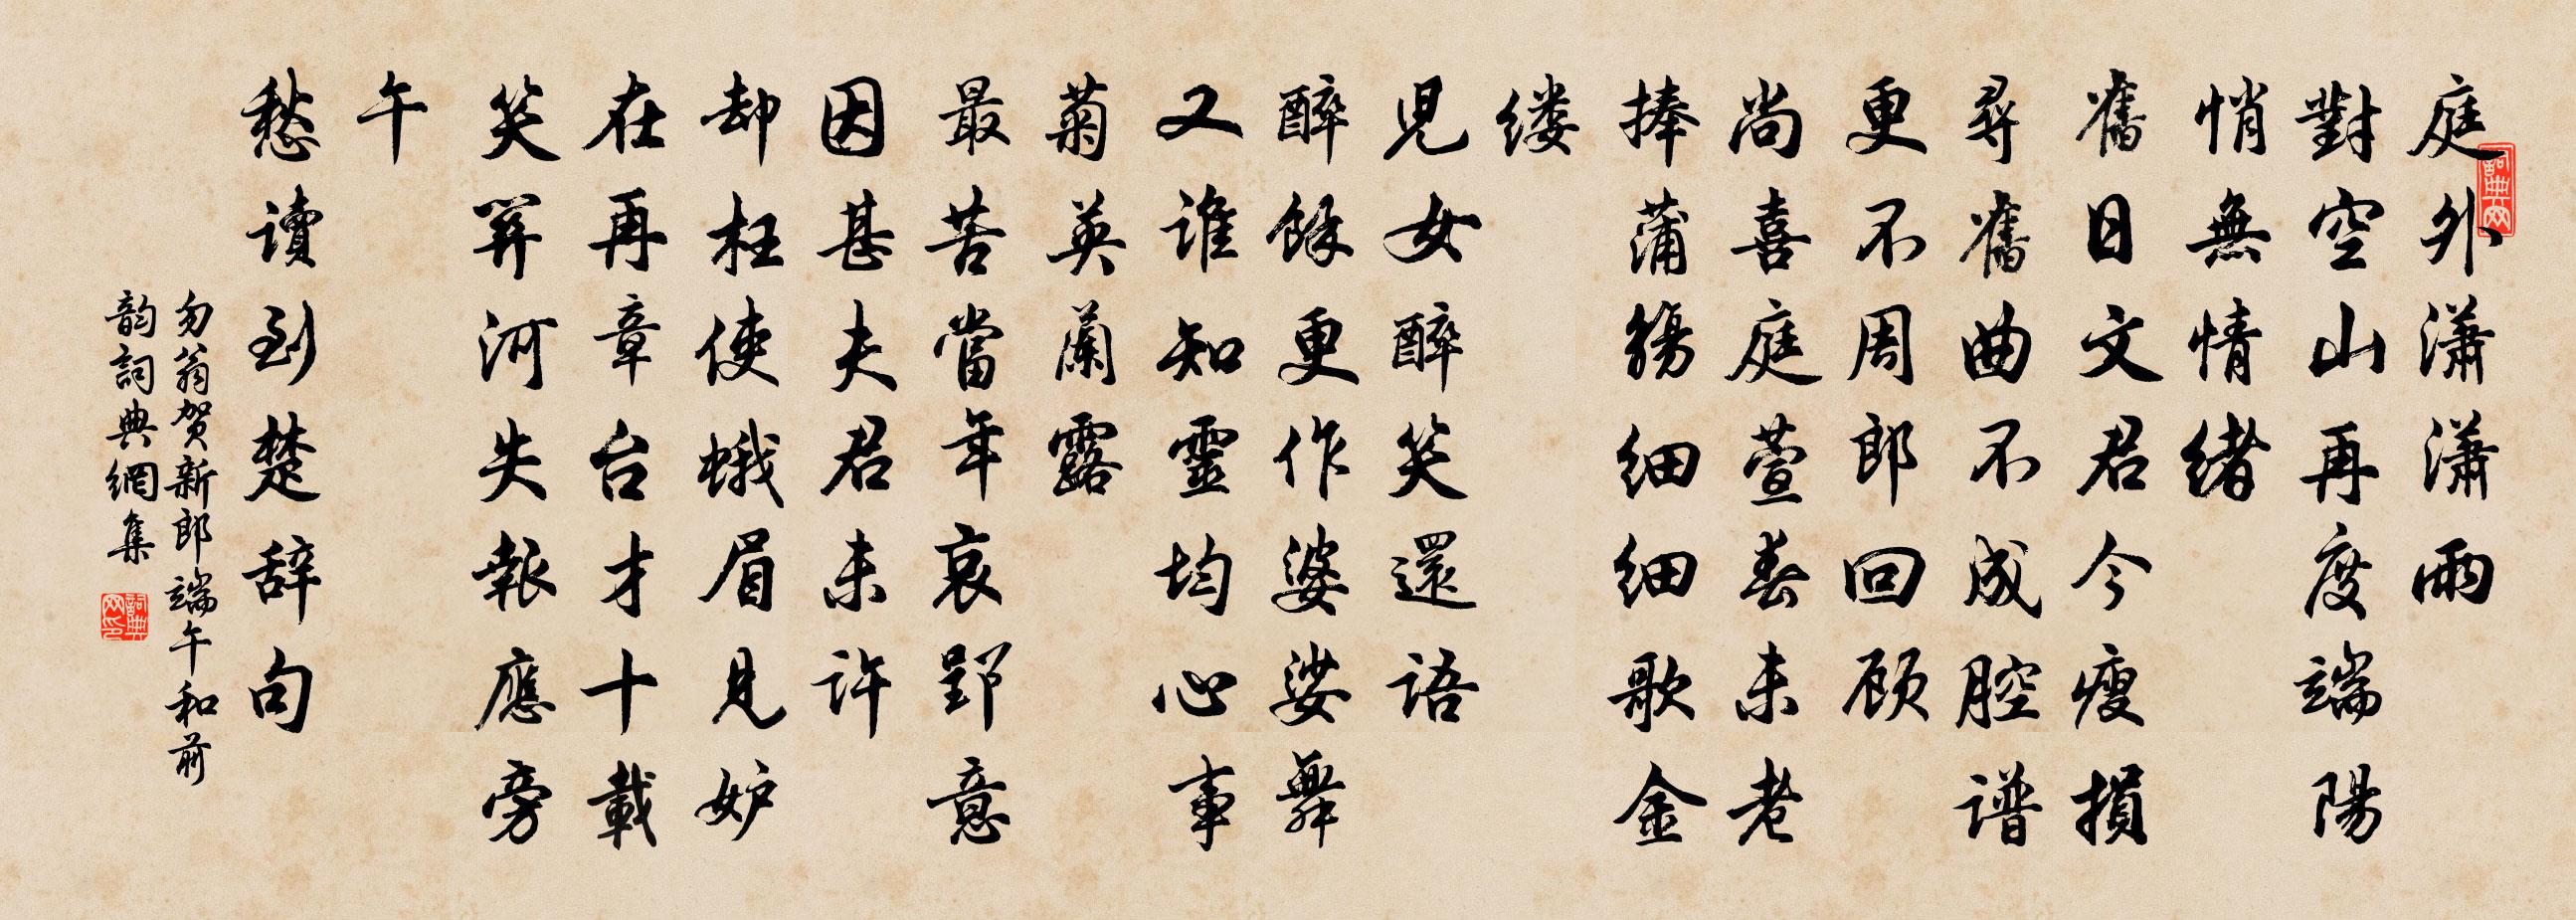 庭外潇潇雨
對空山再度端陽
悄無情緒
舊日文君今瘦損
尋舊曲不成腔譜
更不周郎回顾
尚喜庭萱春未老
捧蒲觞细细歌金
缕
児女醉笑還語
醉餘更作婆娑舞
又谁知靈均心事
菊英蘭露
最苦當年哀郢意
因甚夫君未许
却枉使蛾眉見妒
在再章台才十載
笑笄河失報應旁
午
愁读到楚辞句
勿翁贺新郎端午和前
韵詞典網集
詞典网
詞典网印